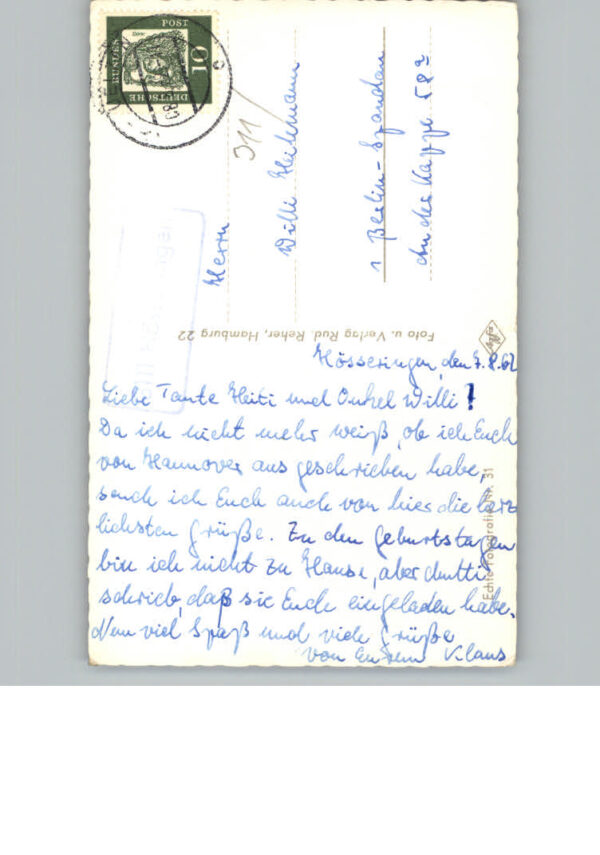 DEUTSCHE BUNDESPOST
10
311
Herrn
Willi
1 Berlin-Spandau
An der Kappe 58a
Foto u. Verlag Rud. Reher, Hamburg 22
Hösseringen, den 7.8.62
Liebe Tante Heiti und Onkel Willi!
Da ich nicht mehr weiß, ob ich Euch
von Hannover aus geschrieben habe,
send ich Euch auch von hier die herz
lichsten Grüße. Zu den Geburtstagen
bin ich nicht zu Hause, aber Mutti
schrieb, daß sie Euch eingeladen habe.
Nun viel Spaß und viele Grüße
von Eurem Klaus